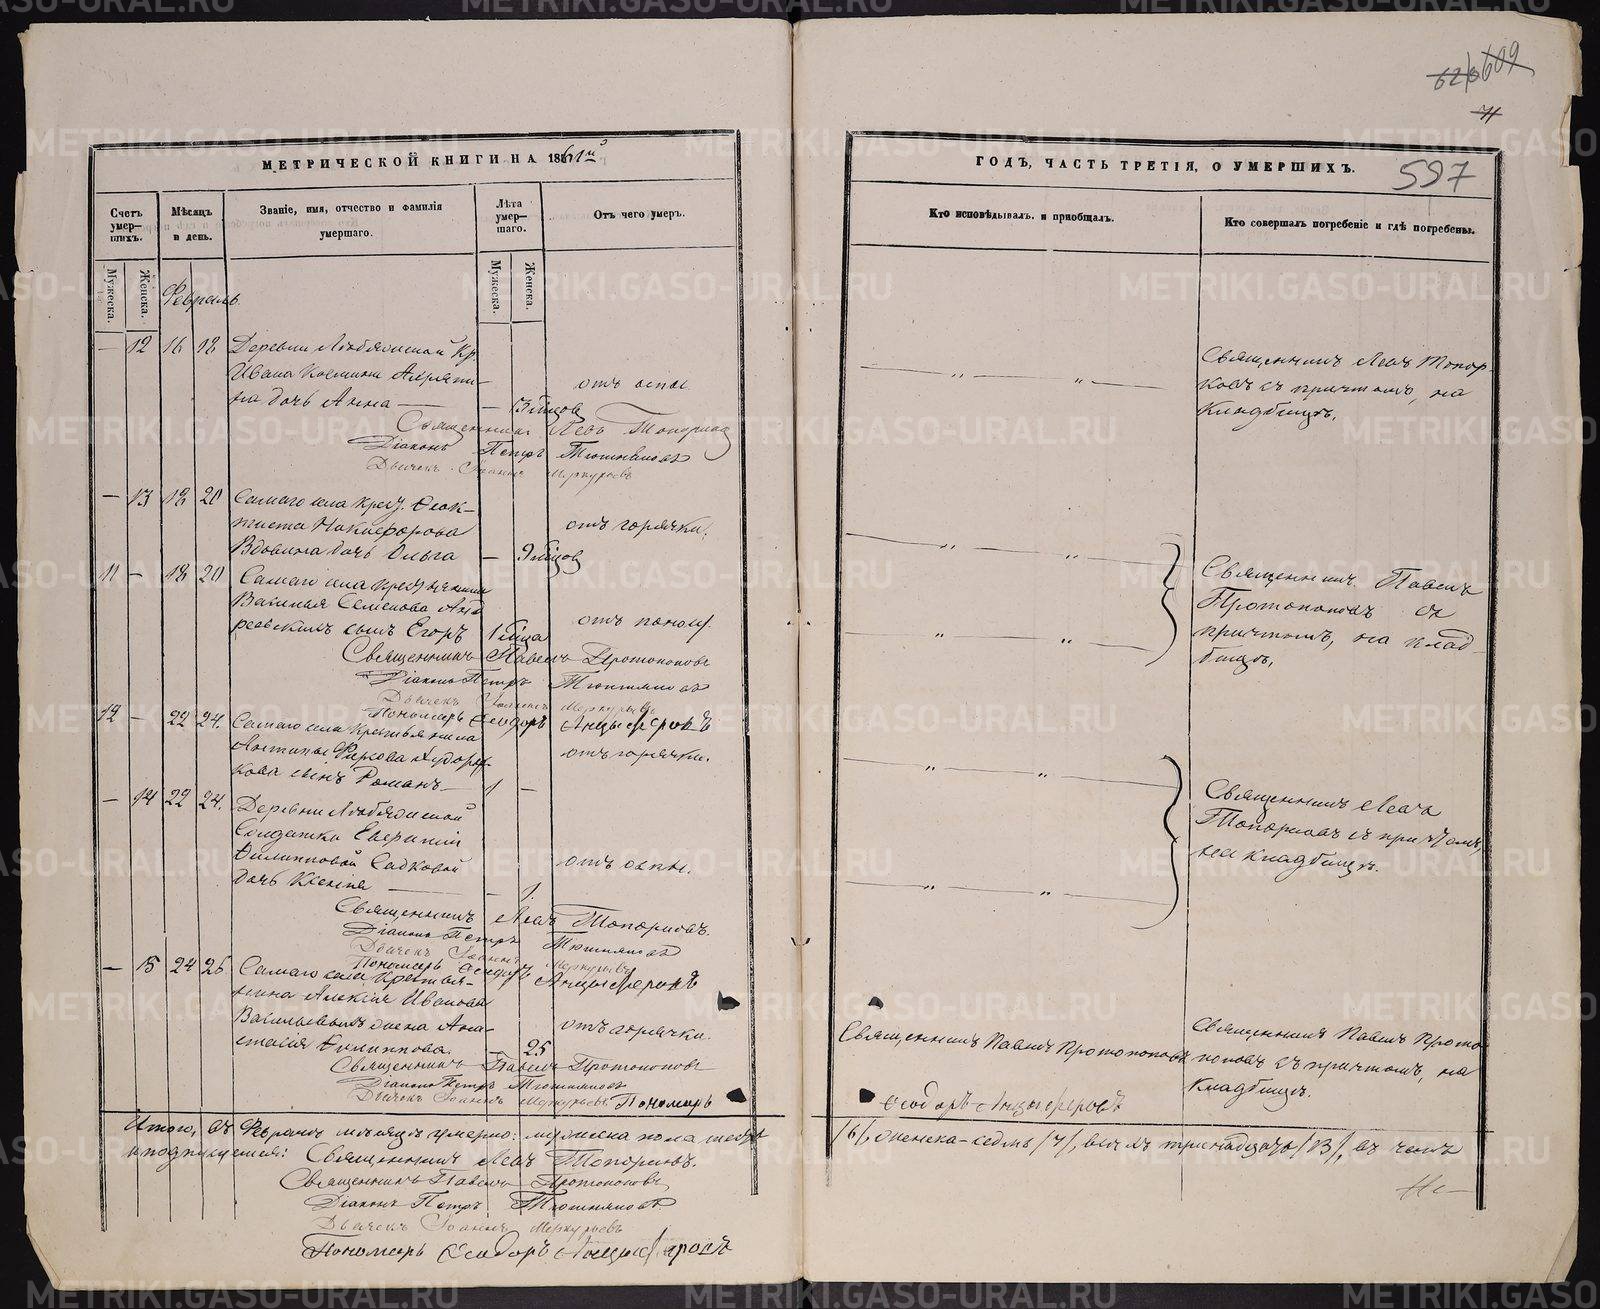 МЕТРИЧЕСКОЙ КНИГИ НА 1861й
Счетъ умер—шихъ.
Мѣсяцъ и день.
Званіе, имя, отчество и фамилія умершаго.
Лѣта умер—шаго.
Отъ чего умеръ.
Мужеска.
Женска.
Мужеска.
Женска.
Февраль.
— 12 16 18 Деревни Кр.
Ивана Космина
на дочь Анна — — отъ оспы
Священникъ Левъ Топорковъ
Діаконъ Петръ
Дьячекъ Іоаннъ Меркурьевъ
— 13 18 20 Самаго села крест. Ѳеок-
тиста Никифорова отъ горячки.
Вдовина дочь Ольга — 9 мѣсяцов
11 — 18 20 Самаго села крестьянина
Василья Семенова Анд
реевскихъ сынъ Егоръ 1 мѣсяца отъ поносу.
Священникъ Павелъ Протопоповъ
Діаконъ Петръ
Дьячекъ Іоаннъ Меркурьевъ
Пономарь Ѳеодоръ Анцыферовъ
12 — 22 24. Самаго села крестьянина
Антипы отъ горячки.
кова сынъ Романъ — 1 —
— 14 22 24. Деревни
Солдатки Евгеніи
Филипповой Садковой отъ оспы.
дочь Ксенія — — 1
Священникъ Левъ Топорковъ.
Діаконъ Петръ
Дьячекъ Іоаннъ Меркурьевъ
Пономарь Ѳеодоръ Анцыферовъ
— 15 24 26 Самаго села крестья-
нина Алексія Иванова
Васильевыхъ жена Ана- отъ горячки.
стасія Филиппова. — 25
Священникъ Павелъ Протопоповъ
Діаконъ Петръ
Дьячекъ Іоаннъ Меркурьевъ Пономарь
Итого, въ Февралѣ мѣсяцѣ умерло: мужеска пола шесть
подписуемся: Священникъ Левъ Топорковъ.
Священникъ Павелъ Протопоповъ
Діаконъ Петръ
Дьячекъ Іоаннъ Меркурьевъ
Пономарь Ѳеодоръ Анцыферовъ
609
71
597
ГОДЪ, ЧАСТЬ ТРЕТІЯ, О УМЕРШИХЪ.
Кто исповѣдывалъ и пріобщалъ.
Кто совершалъ погребеніе и гдѣ погребены.
Священникъ Левъ Топор-
ковъ съ причтомъ, на
кладбищѣ.
Священникъ Павелъ
Протопоповъ съ
причтомъ, на клад-
бищѣ.
Священникъ Левъ
Топорковъ съ причтомъ,
на кладбищѣ.
Священникъ Павелъ Протопоповъ
Священникъ Павелъ Прото-
поповъ съ причтомъ, на
кладбищѣ.
Ѳеодоръ Анцыферовъ
/6/, женска - седмь /7/, всѣхъ тринадцать /13/, въ чемъ
METRIKI.GASO-URAL.RU